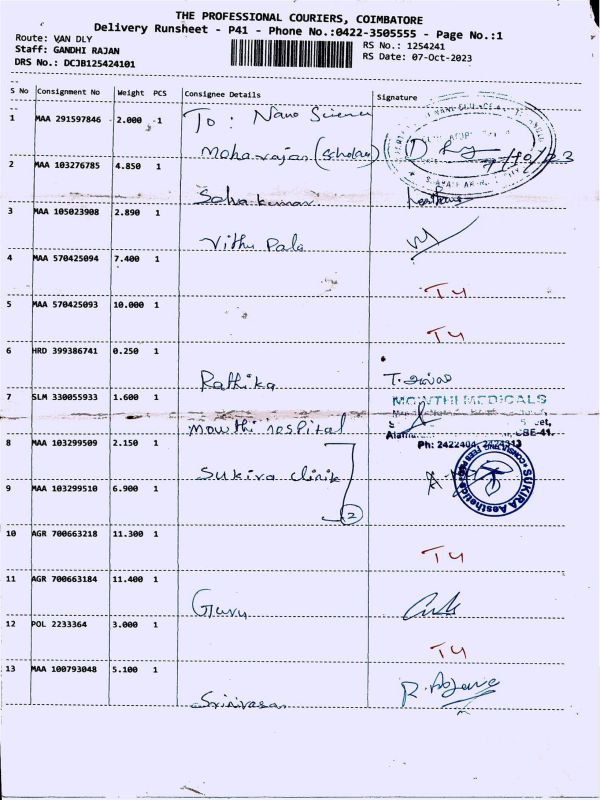 THE PROFESSIONAL COURIERS, COIMBATORE
Delivery Runsheet - P41 - Phone No.:0422-3505555 - Page No.:1
Route: VAN DLY
Staff: GANDHI RAJAN
DRS No.: DCJB125424101
RS No.: 1254241
RS Date: 07-Oct-2023
S No Consignment No Weight PCS Consignee Details Signature
1 MAA 291597846 2.000 1 To: Nano Science
Moharajan (scholar) 7/10/23
2 MAA 103276785 4.850 1
3 MAA 105023908 2.890 1 Vithu Pala
4 MAA 570425094 7.400 1 T4
5 MAA 570425093 10.000 1 T4
6 HRD 399386741 0.250 1 Rathika
7 SLM 330055933 1.600 1 Mowthi Hospital
MOWTHI MEDICALS
CBE-41.
Ph: 2422404, 2424313
8 MAA 103299509 2.150 1 Sukira clinik
SUKIRA Aesthetics
9 MAA 103299510 6.900 1 2
10 AGR 700663218 11.300 1 T4
11 AGR 700663184 11.400 1 Guru
12 POL 2233364 3.000 1 T4
13 MAA 100793048 5.100 1 Srinivasan